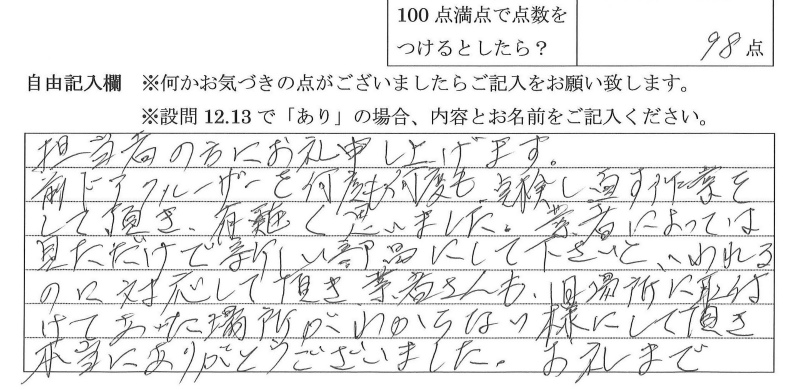 100 点満点で点数を
つけるとしたら？
98 点
自由記入欄 ※何かお気づきの点がございましたらご記入をお願い致します。
※設問 12.13 で「あり」の場合、内容とお名前をご記入ください。
担当者の方にお礼申し上げます。
前ドアクルーザーを何度も何度も点検し直す作業を
して頂き、有難く思いました。業者によっては
見ただけで新しい部品にして下さいと、いわれる
のに対応して頂き業者さんも、旧場所に取付
けてあった場所がわからない様にして頂き
本当にありがとうございました。お礼まで